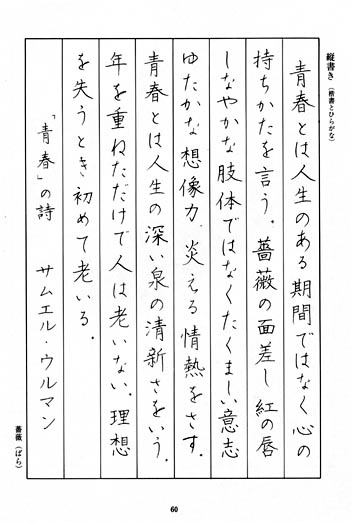 縦書き（楷書とひらがな）
青春とは人生のある期間ではなく心の
持ちかたを言う。薔薇の面差し紅の唇
しなやかな肢体ではなくたくましい意志
ゆたかな想像力、炎える情熱をさす。
青春とは人生の深い泉の清新さをいう。
年を重ねただけで人は老いない。理想
を失うとき初めて老いる。
「青春」の詩　サムエル・ウルマン
薔薇（ばら）
60